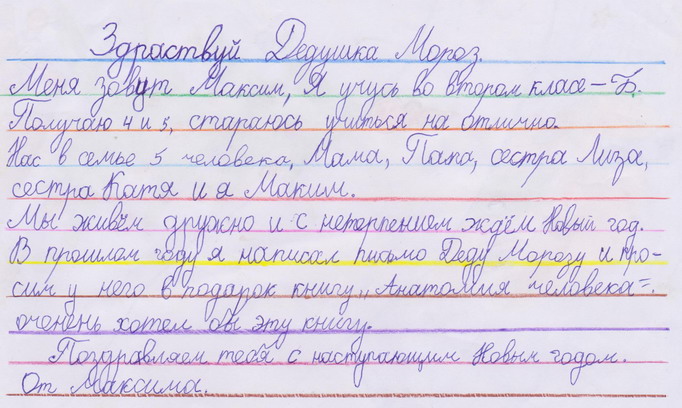 Здраствуй Дедушка Мороз.
Меня зовут Максим, Я учусь во втором класе – Б.
Получаю 4 и 5, стараюсь учиться на отлично.
Нас в семье 5 человека, Мама, Папа, сестра Лиза,
сестра Катя и я Маким.
Мы живём дружно и с нетерпением ждём Новый год.
В прошлом году я написал письмо Деду Морозу и про-
сим у него в подарок книгу „Анатомия человека".
оченень хотел бы эту книгу.
Поздравляем тебя с наступающим Новым годом.
От Максима.